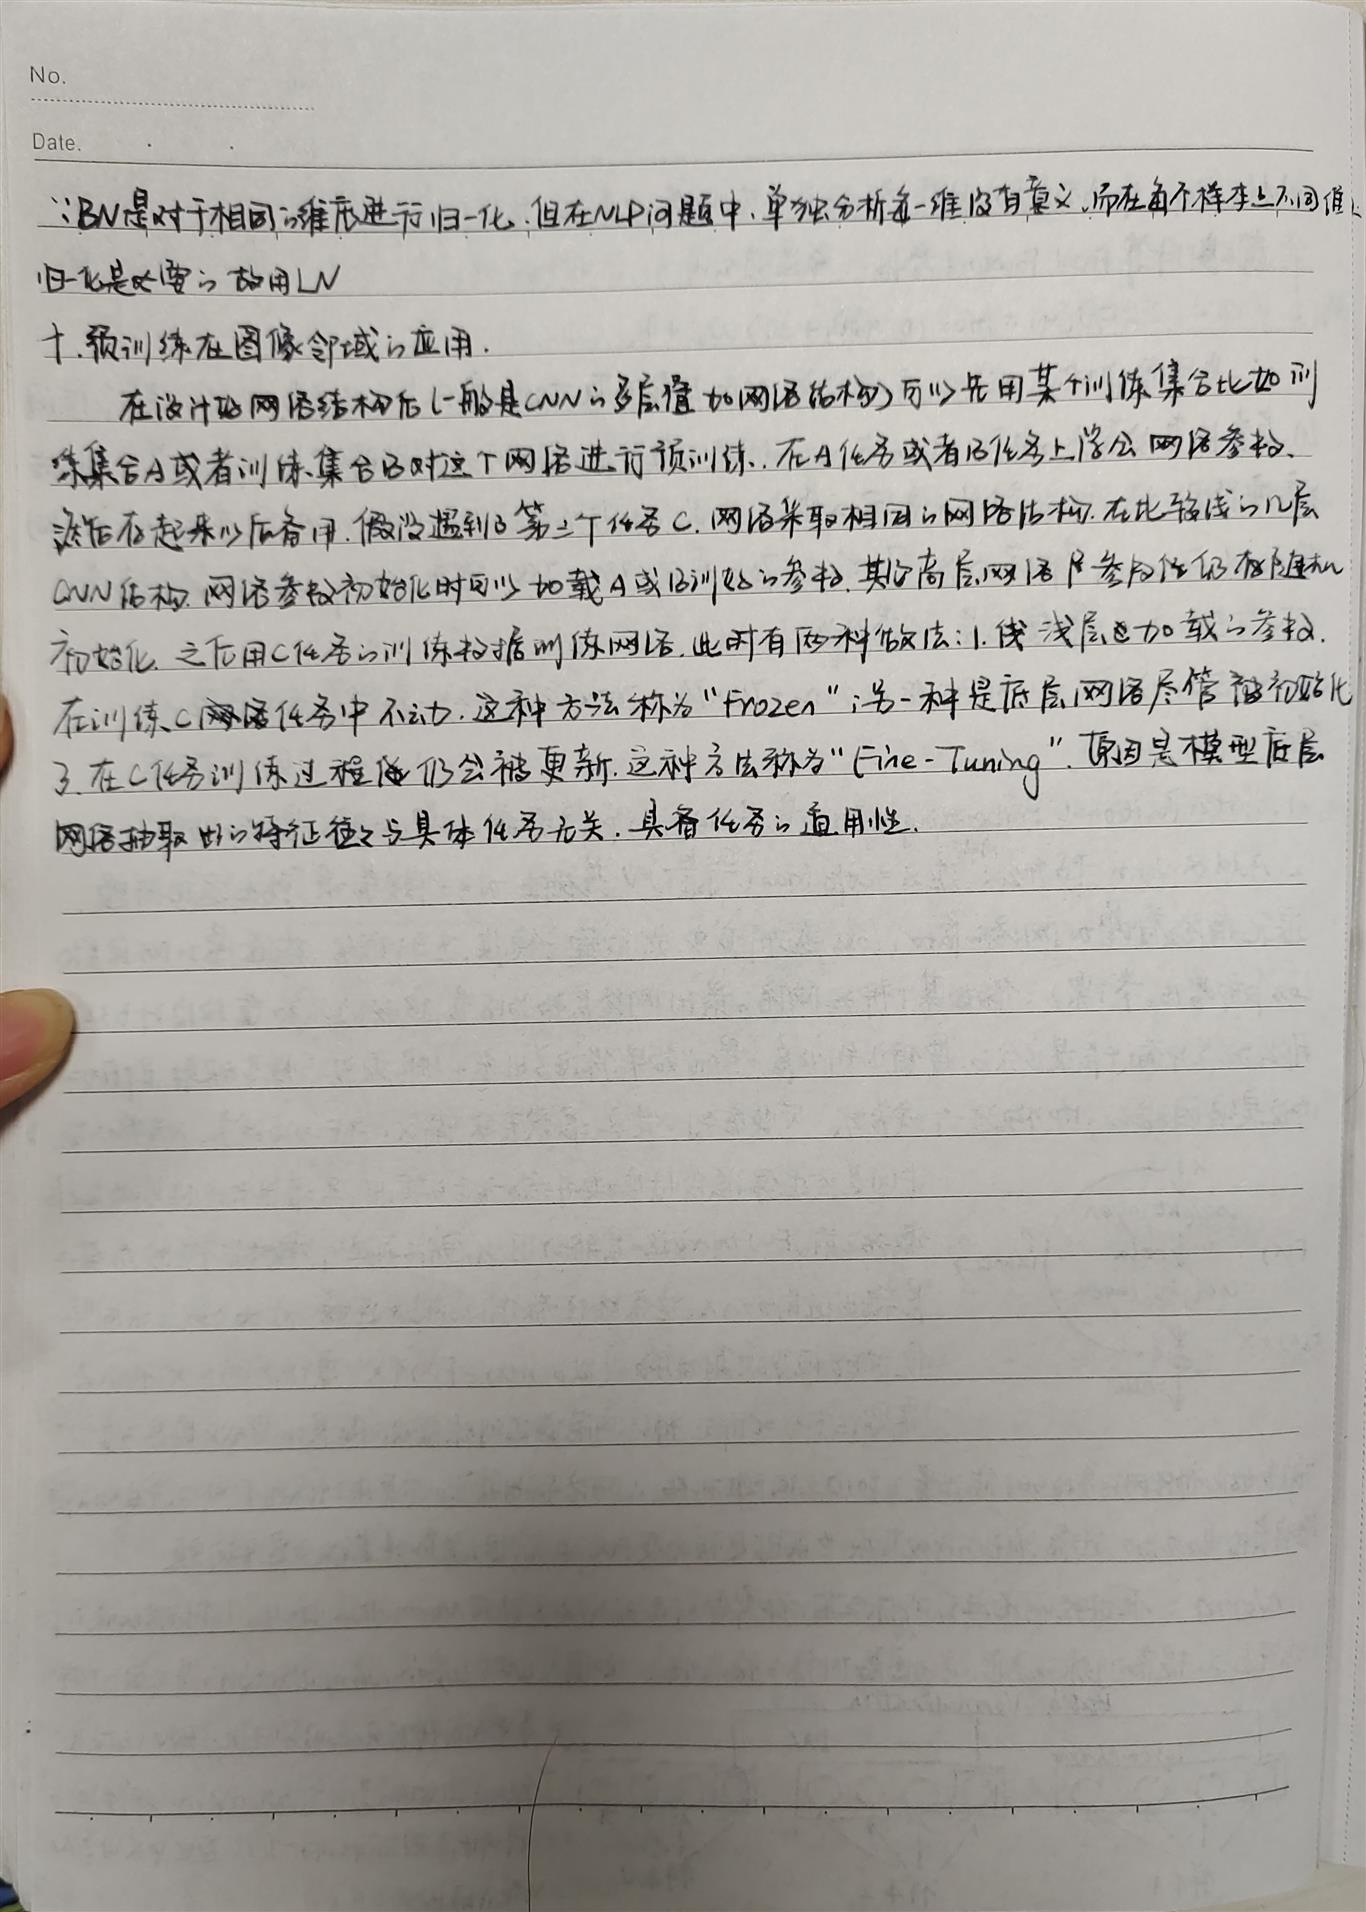 No.
Date.
∵BN是对于相同的维度进行归一化,但在NLP问题中,单独分析每一维没有意义,而在每个样本上不同维
归一化是必要的 故用LN
十.预训练在图像邻域的应用.
在设计好网络结构后(一般是CNN的多层叠加网络结构)可以先用某个训练集合比如训
练集合A或者训练集合B对这个网络进行预训练.在A任务或者B任务上学会网络参数、
然后存起来以后备用.假设遇到了第三个任务C.网络采取相同的网络结构.在比较浅的几层
CNN结构.网络参数初始化时可以加载A或B训好的参数.其它高层网络层参数仍在随机
初始化.之后用C任务的训练数据训练网络.此时有两种做法:1.浅层加载的参数.
在训练C任务中不动.这种方法称为"Frozen";另一种是底层网络尽管被初始化
了.在C任务训练过程仍会被更新.这种方法称为"Fine-Tuning".原因是模型底层
网络抽取出的特征往往与具体任务无关.具备任务的通用性.